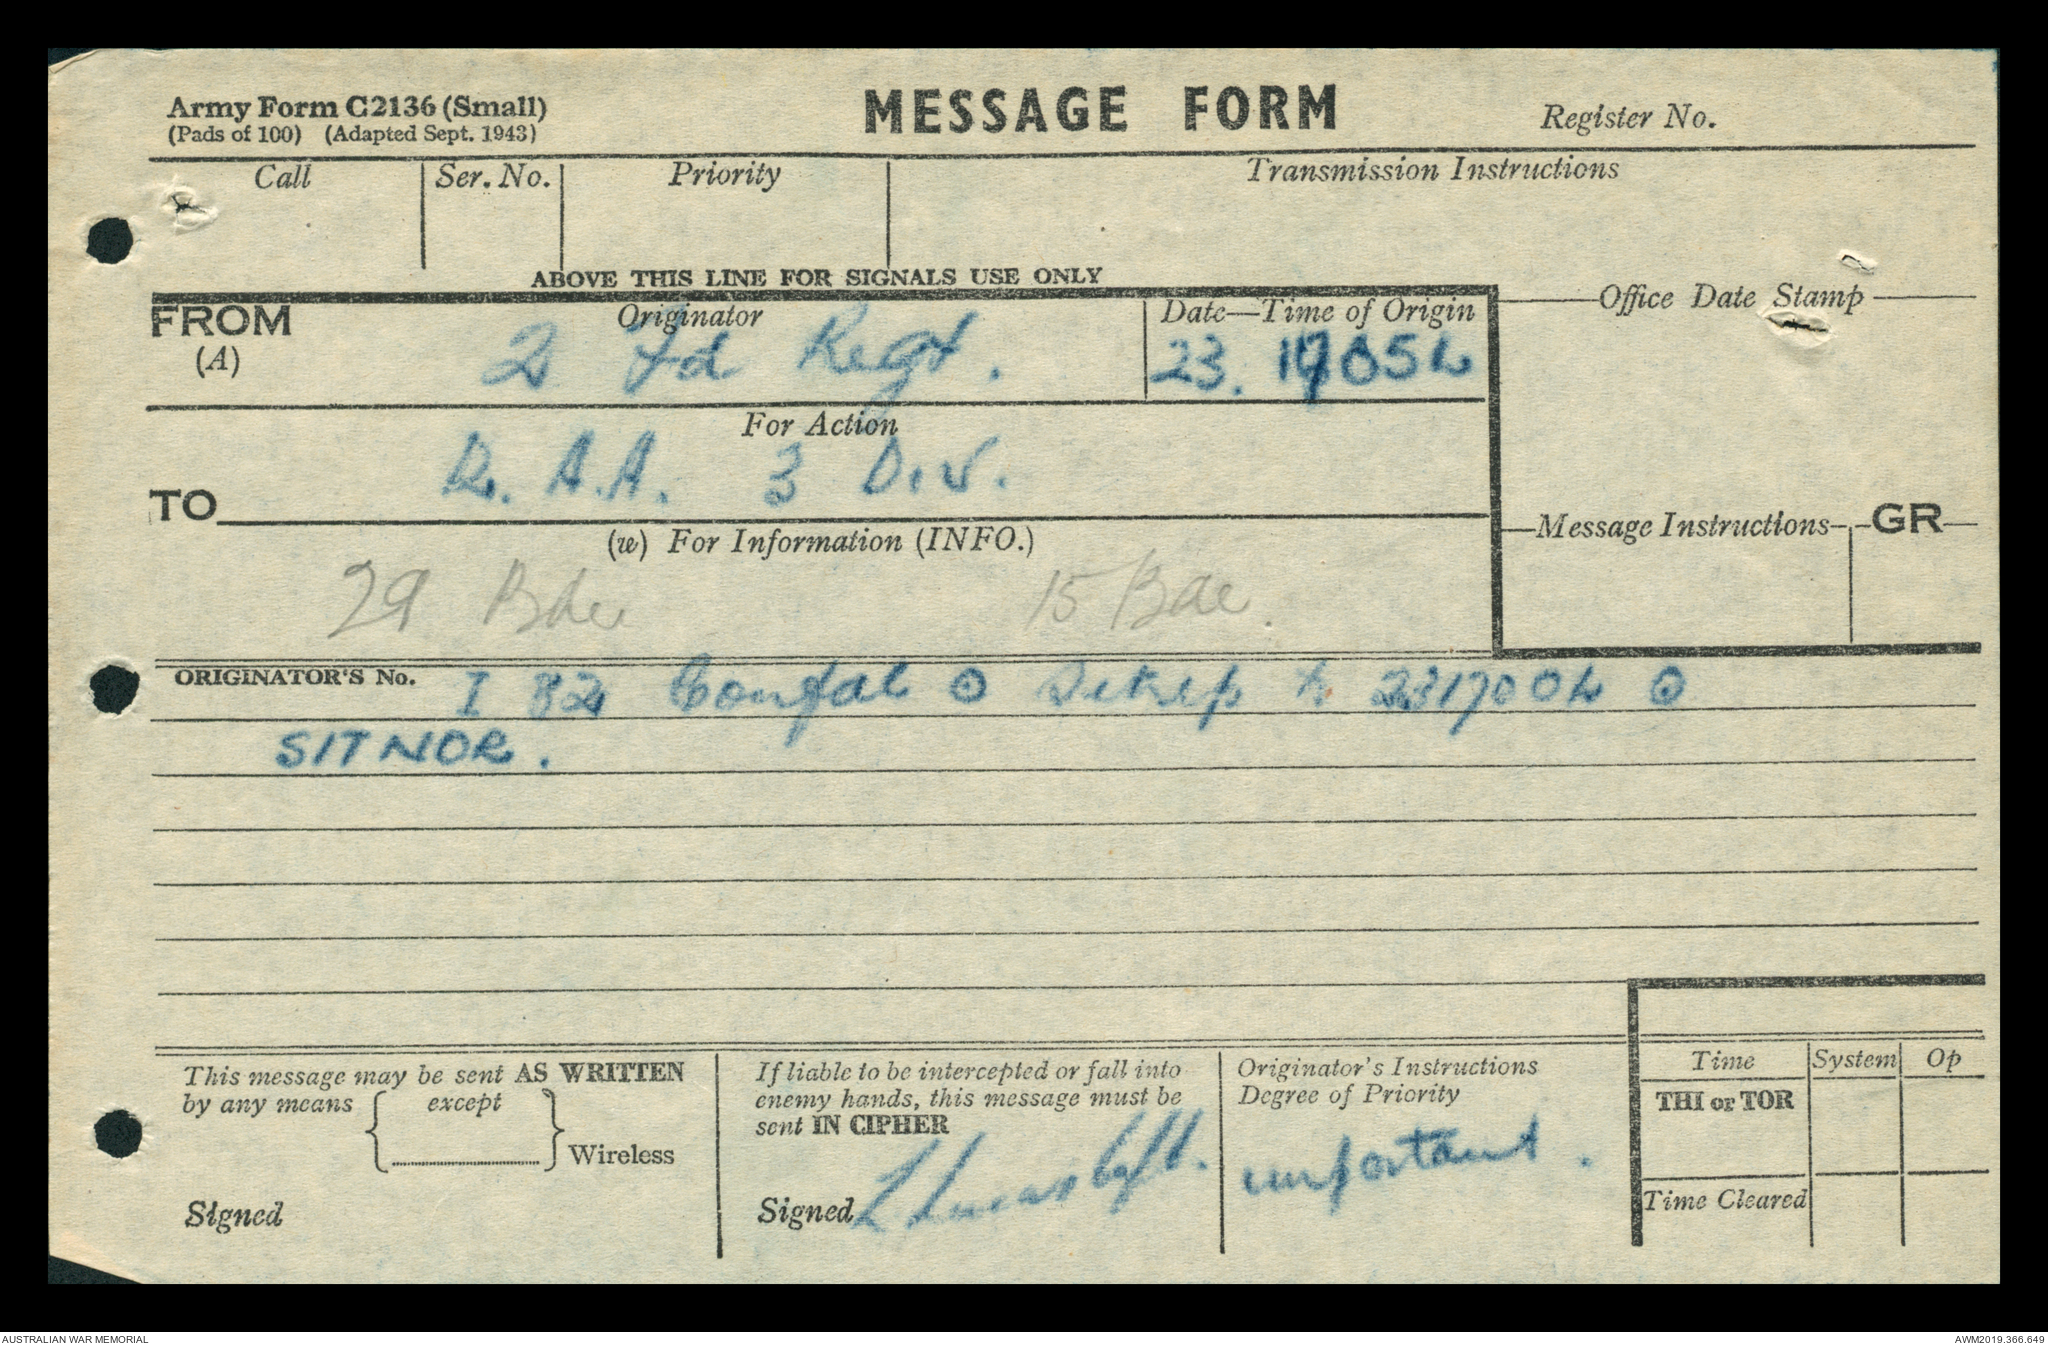 Army Form C2136 (Small)
(Pads of 100) (Adapted Sept. 1943)
MESSAGE FORM
Register No.
Call
Ser. No.
Priority
Transmission Instructions
ABOVE THIS LINE FOR SIGNALS USE ONLY
FROM
(A)
Originator
2 Fd Regt.
Date—Time of Origin
23. 1705L
Office Date Stamp
For Action
TO
R.A.A. 3 Div.
(w) For Information (INFO.)
29 Bde 15 Bde.
Message Instructions
GR
ORIGINATOR'S No.
I 82 Confal ⊙ Sitrep to 231700L ⊙
SITNOR.
This message may be sent AS WRITTEN
by any means { except } Wireless
Signed
If liable to be intercepted or fall into
enemy hands, this message must be
sent IN CIPHER
Signed L Lucas Capt.
Originator's Instructions
Degree of Priority
important.
Time
System
Op
THI or TOR
Time Cleared
AUSTRALIAN WAR MEMORIAL
AWM2019.366.649